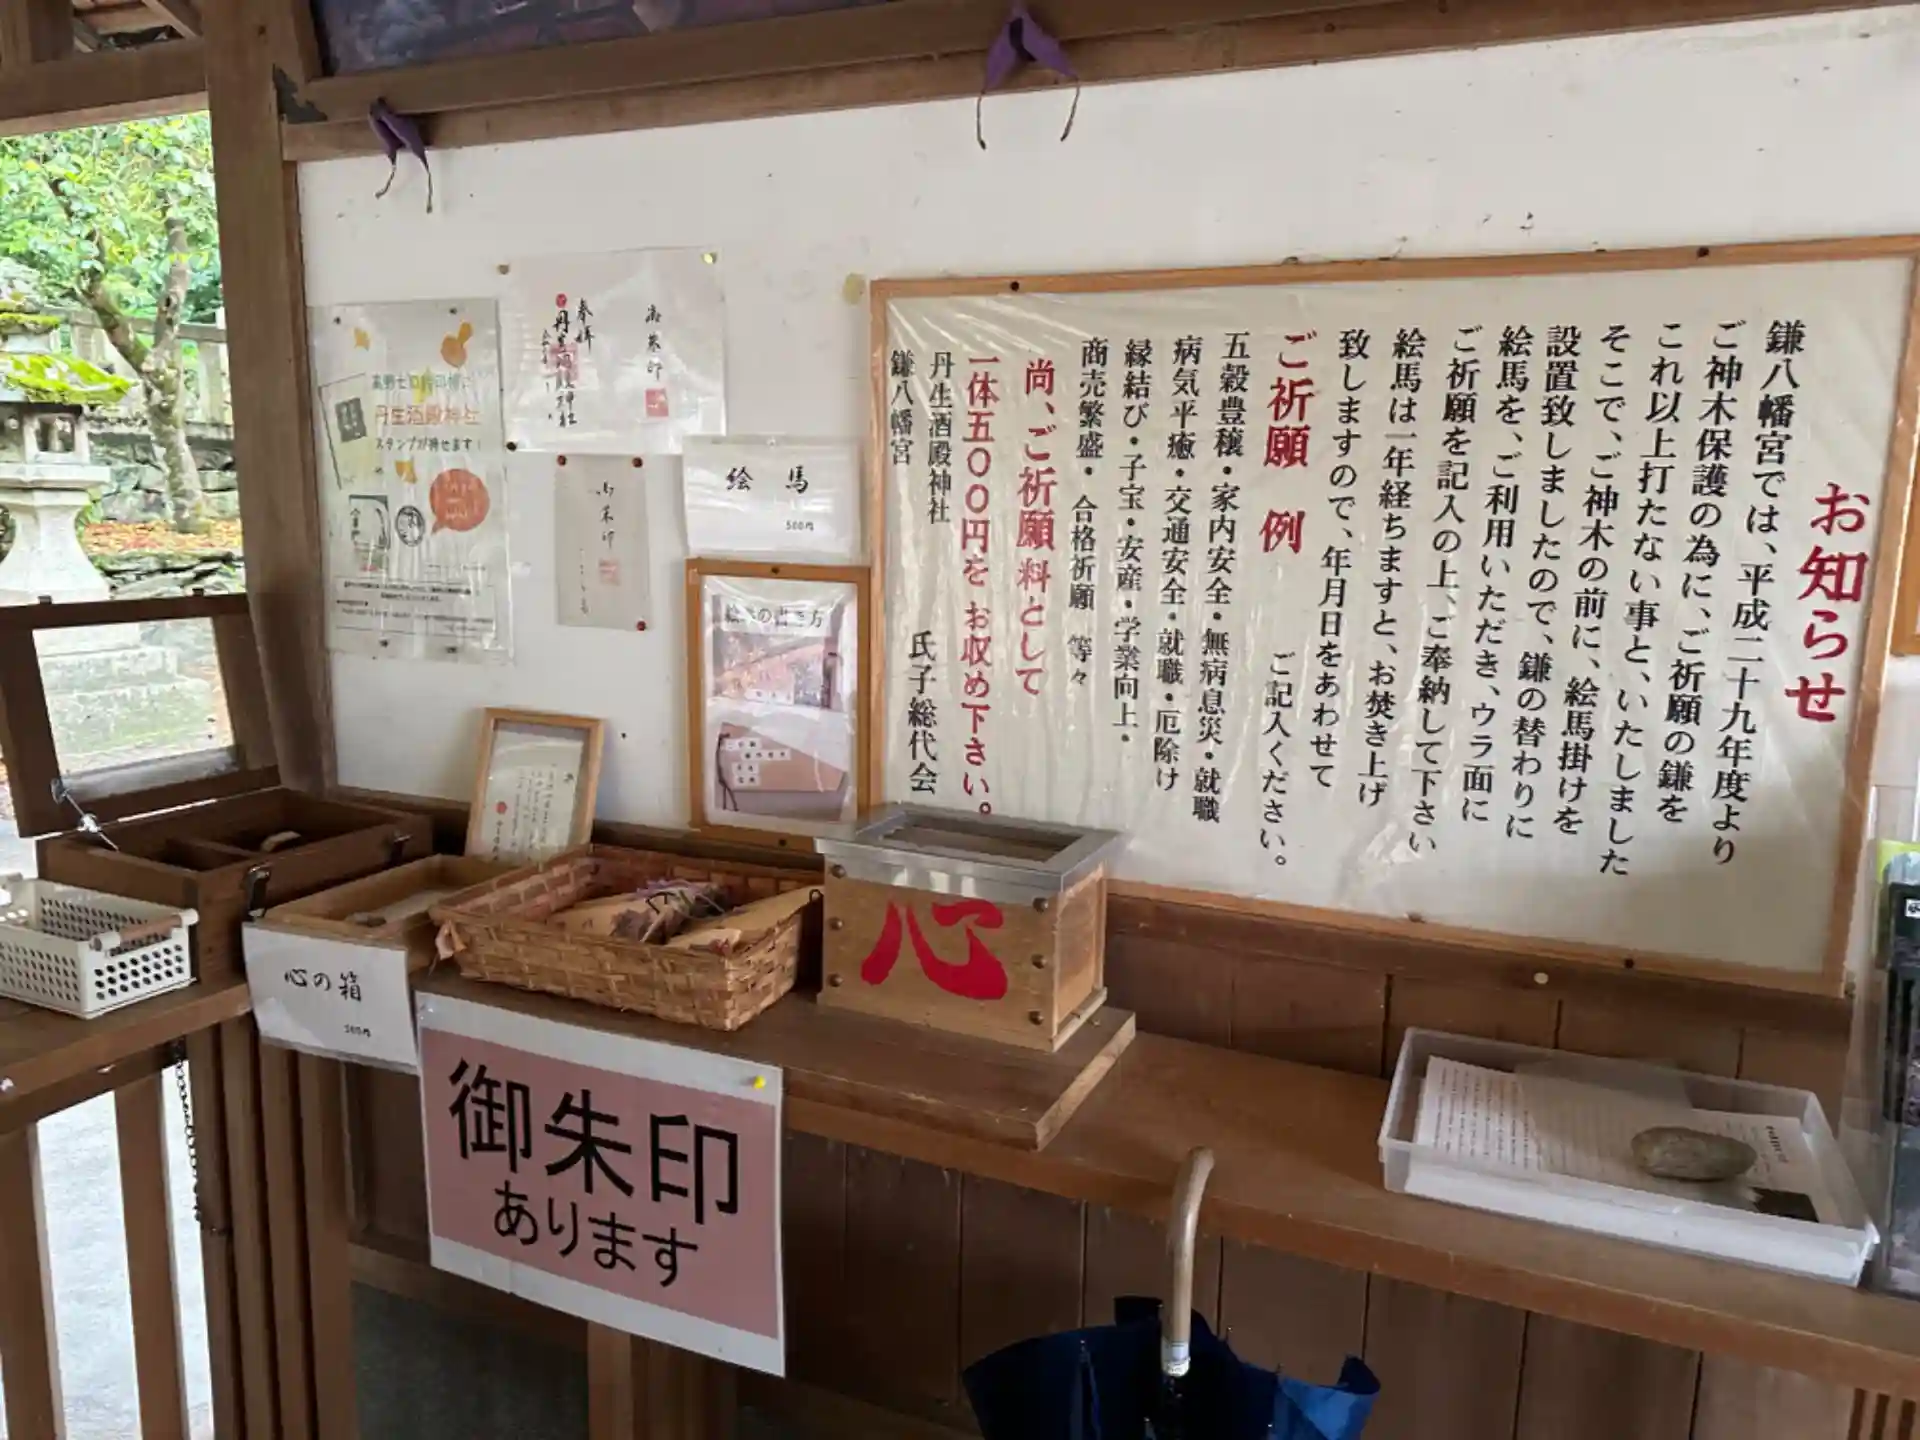 お知らせ
鎌八幡宮では、平成二十九年度より
ご神木保護の為に、ご祈願の鎌を
これ以上打たない事と、いたしました
そこで、ご神木の前に、絵馬掛けを
設置致しましたので、鎌の替わりに
絵馬を、ご利用いただき、ウラ面に
ご祈願を記入の上、ご奉納して下さい
絵馬は一年経ちますと、お焚き上げ
致しますので、年月日をあわせて
ご記入ください。
ご祈願 例
五穀豊穣・家内安全・無病息災・就職
病気平癒・交通安全・就職・厄除け
縁結び・子宝・安産・学業向上・
商売繁盛・合格祈願 等々
尚、ご祈願料として
一体五〇〇円を お収め下さい。
丹生酒殿神社
鎌八幡宮
氏子総代会
丹生酒殿神社
スタンプが押せます!
奉拝
御朱印
絵 馬
500円
絵馬の書き方
心
心の箱
500円
御朱印
あります